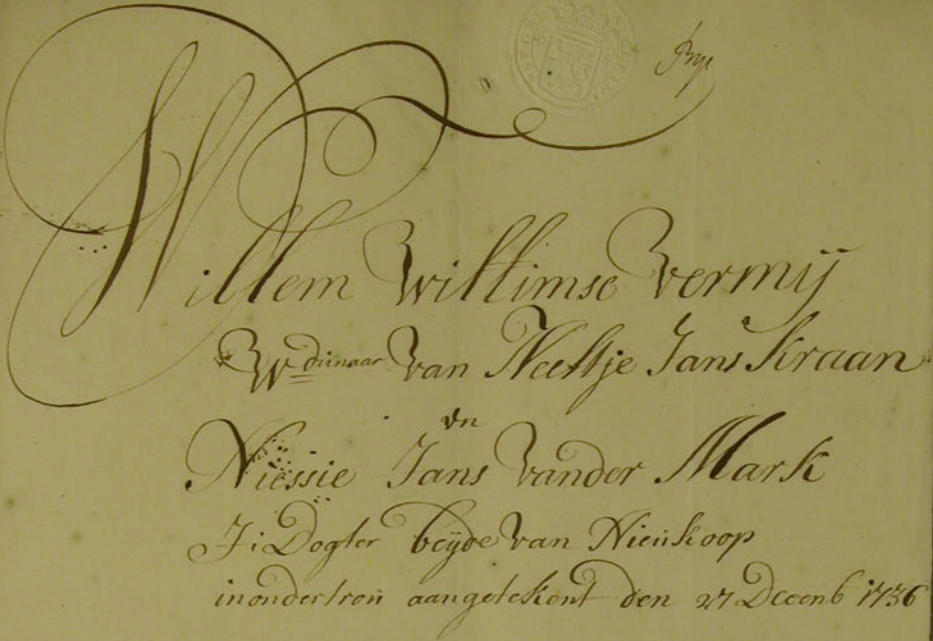 Willem Willimse Vermij
Wdunaar van Neeltje Jans Kraan
en
Niessie Jans Vander Mark
J: Dogter beyde van Nieukoop
in ondertrou aangetekent den 27 Decemb 1736